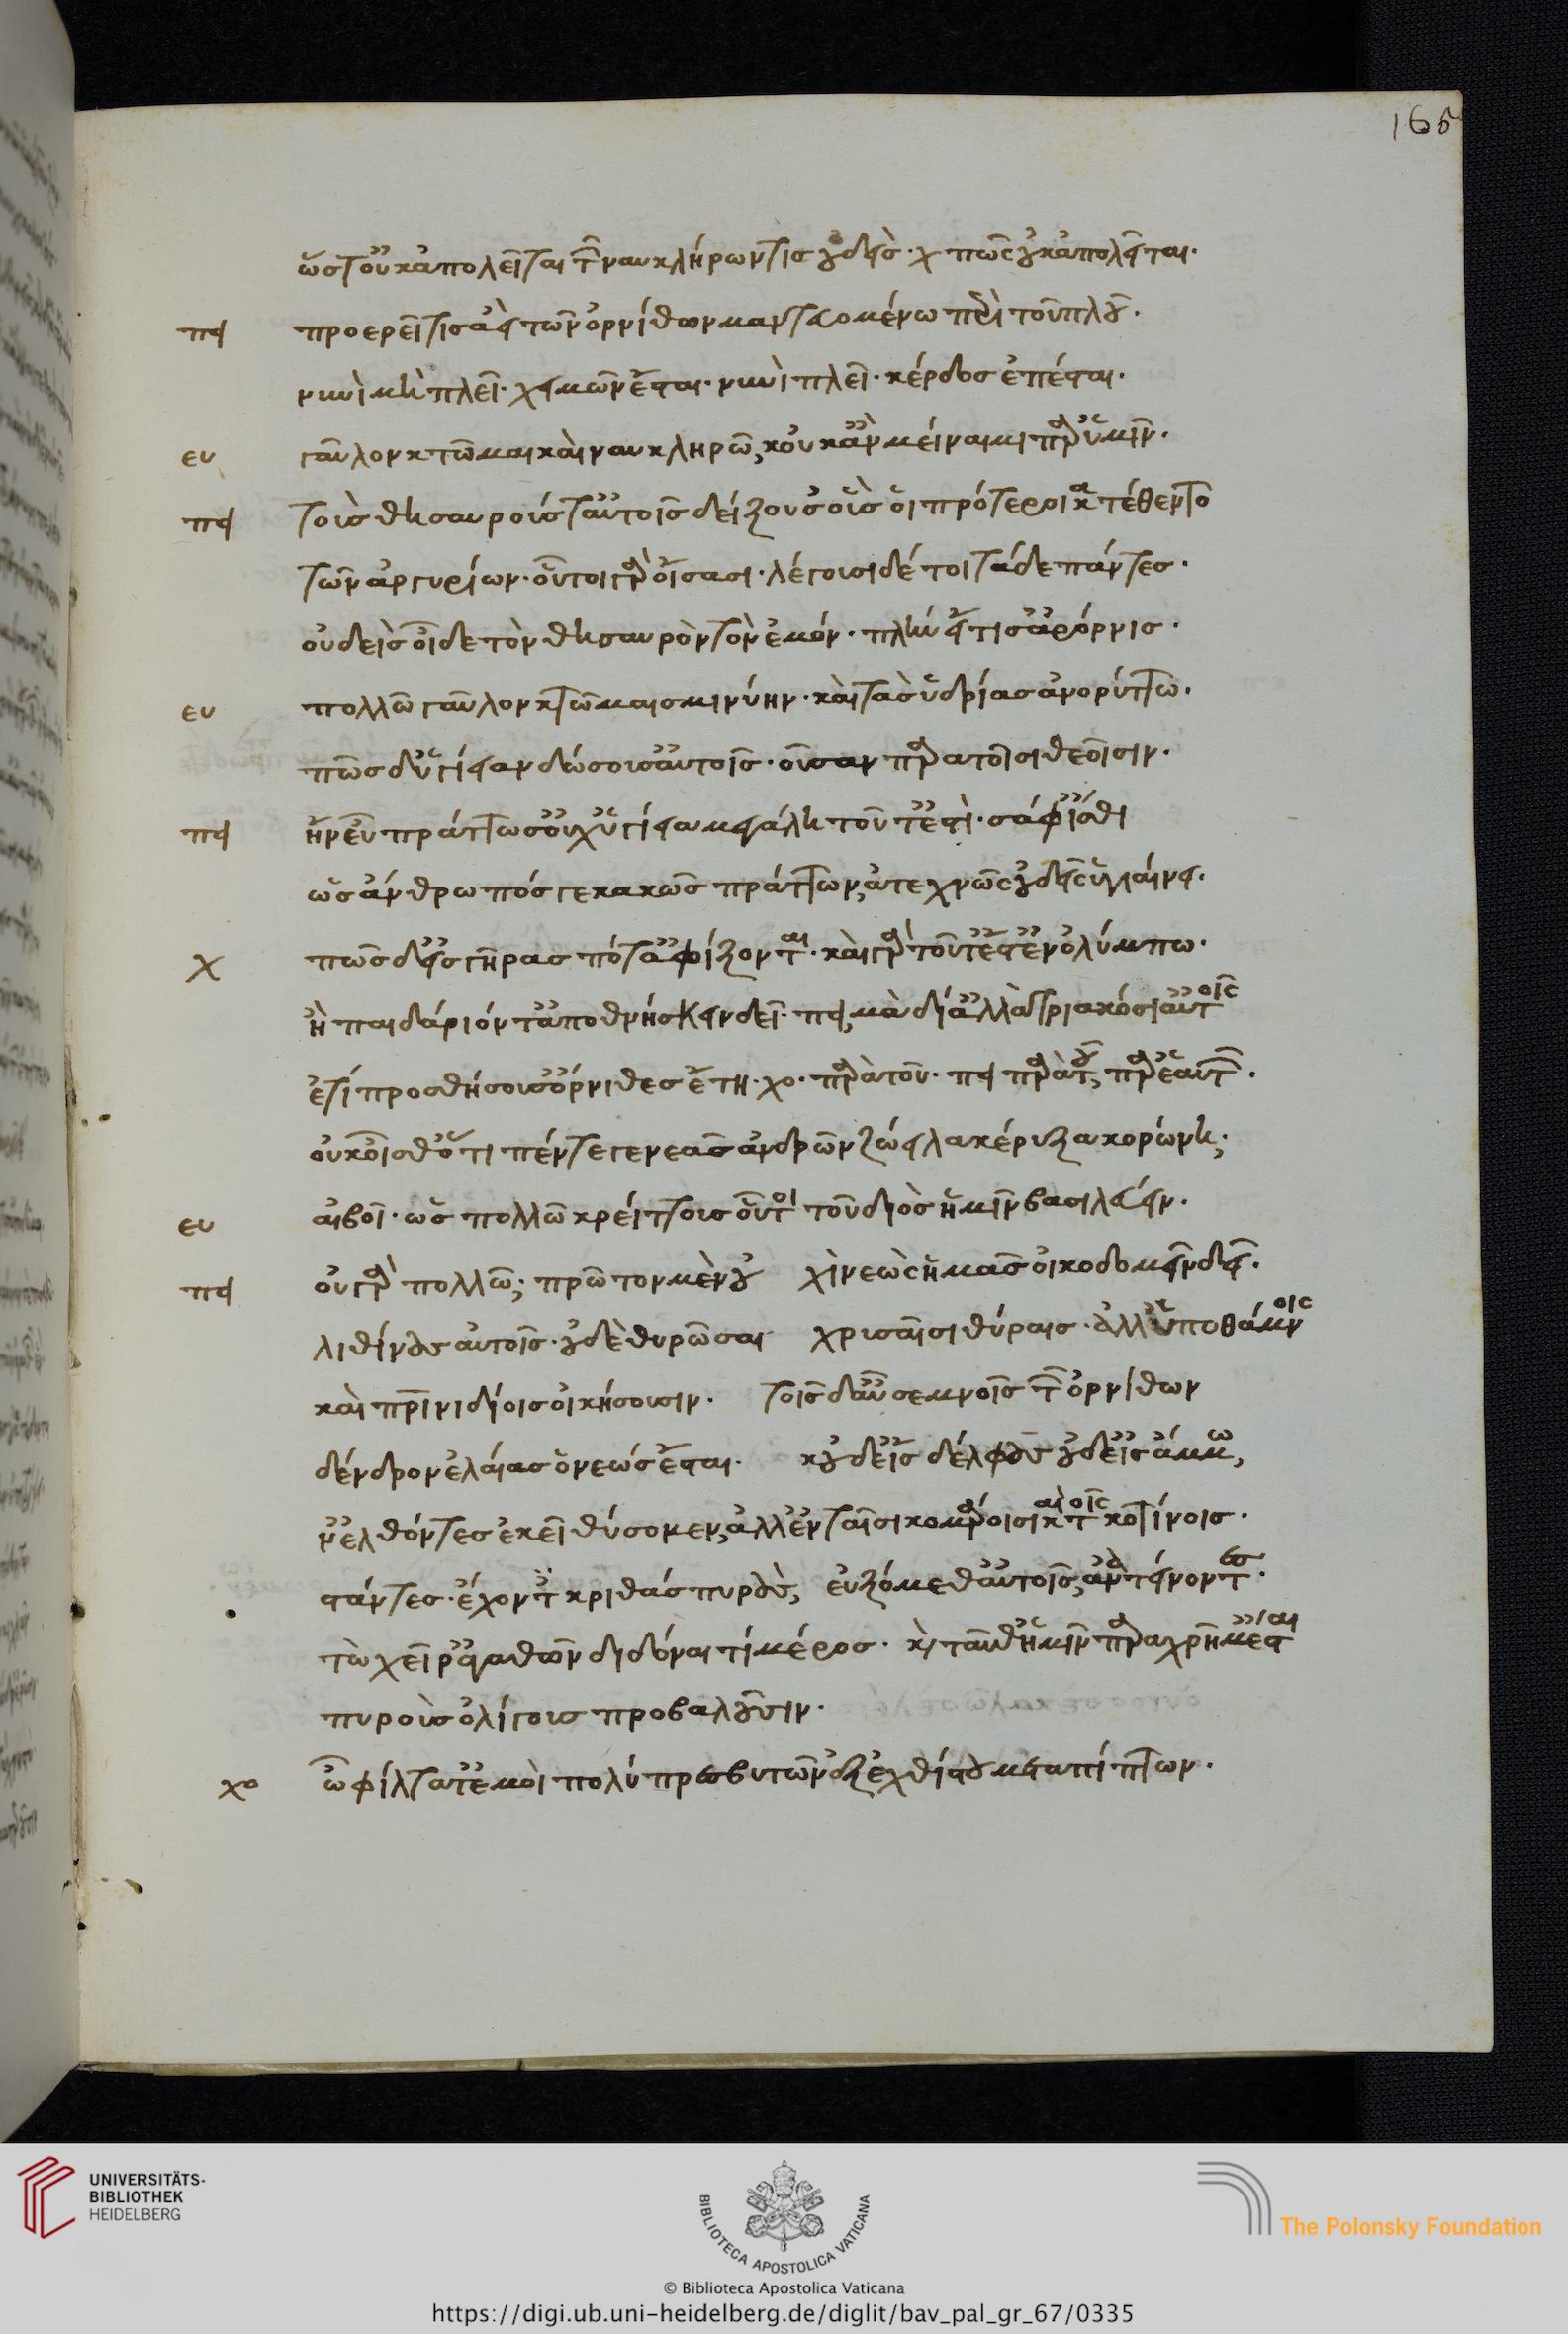 165
ὥστ' οὐκ ἀπολεῖται τῶν ναυκλήρων τις οὐδείς. χ πῶς οὐκ ἀπολεῖται.
πει προερεῖ τις ἀεὶ τῶν ὀρνίθων μαντευομένω περὶ τοῦ πλοῦ.
νυνὶ μὴ πλεῖ. χειμὼν ἔσται. νυνὶ πλεῖ. κέρδος ἐπέσται.
ευ γαῦλον κτῶμαι καὶ ναυκληρῶ, κοὐκ ἂν μείναιμι παρ' ὑμῖν.
πει τοὺς θησαυρούς τ' αὐτοῖς δείξουσ' οὓς οἱ πρότεροι κατέθεντο
τῶν ἀργυρίων. οὗτοι γὰρ ἴσασι. λέγουσι δέ τοι τάδε πάντες.
οὐδεὶς οἶδε τὸν θησαυρὸν τὸν ἐμόν. πλὴν εἴ τις ἄρ' ὄρνις.
ευ πολλῶ γαῦλον κτῶμαι σμινύην. καὶ τὰς ὑδρίας ἀνορύττω.
πῶς δ' ὑγίειαν δώσουσ' αὐτοῖς. οὖσαν παρὰ τοῖσι θεοῖσιν.
πει ἢν εὖ πράττωσ' οὐχ ὑγίεια μεγάλη τοῦτ' ἐστὶ. σάφ' ἴσθι
ὡς ἄνθρωπός γε κακῶς πράττων, ἀτεχνῶς οὐδεὶς ὑγιαίνει.
χ πῶς δ' εἰς γῆρας πότ' ἀφίξονται. καὶ γὰρ τοῦτ' ἔστ' ἐν ὀλύμπω.
ἢ παιδάρι' ὄντ' ἀποθνήσκειν δεῖ. πει, μὰ δί' ἀλλὰ τριακόσι' αὐτοῖς
ἔτι προσθήσουσ' ὄρνιθες ἔτη. χο. παρὰ τοῦ. πει παρὰ τοῦ, παρ' ἑαυτῶν.
οὐκ οἶσθ' ὅτι πέντε γενεὰς ἀνδρῶν ζώει λακέρυζα κορώνη;
ευ αἰβοῖ. ὡς πολλῶ κρείττους οὗτοι τοῦ διὸς ἡμῖν βασιλεύειν.
πει οὐ γὰρ πολλῶ; πρῶτον μὲν οὐ χὶ νεὼς ἡμᾶς οἰκοδομεῖν δεῖ.
λιθίνους αὐτοῖς. οὐδὲ θυρῶσαι χρυσαῖσι θύραις. ἀλλ' ὑπο θάμνοις
καὶ πρινιδίοις οἰκήσουσιν. τοῖς δ' αὖ σεμνοῖς τῶν ὀρνίθων
δένδρον ἐλαίας ὁ νεώς ἔσται. κοὐδ' εἰς δέλφους οὐδ' εἰς ἄμμω,
ν' ἐλθόντες ἐκεῖ θύσομεν, ἀλλ' ἐν ταῖσι κομάροισι καὶ τοῖς κοτίνοις.
στάντες. ἔχοντ' κριθάς πυρούς, εὐξόμεθ' αὐτοῖς, ἀνατείνοντες.
τὼ χεῖρ' ἀγαθῶν διδόναι τί μέρος. καὶ ταῦθ' ἡμῖν παραχρῆμ' ἔσται
πυροὺς ὀλίγους προβαλοῦσιν.
χο ὦ φίλτατ' ἐμοὶ πολύ πρεσβυτῶν ἐξ ἐχθίστου μεταπίπτων.
UNIVERSITÄTS-
BIBLIOTHEK
HEIDELBERG
BIBLIOTECA APOSTOLICA VATICANA
The Polonsky Foundation
© Biblioteca Apostolica Vaticana
https://digi.ub.uni-heidelberg.de/diglit/bav_pal_gr_67/0335